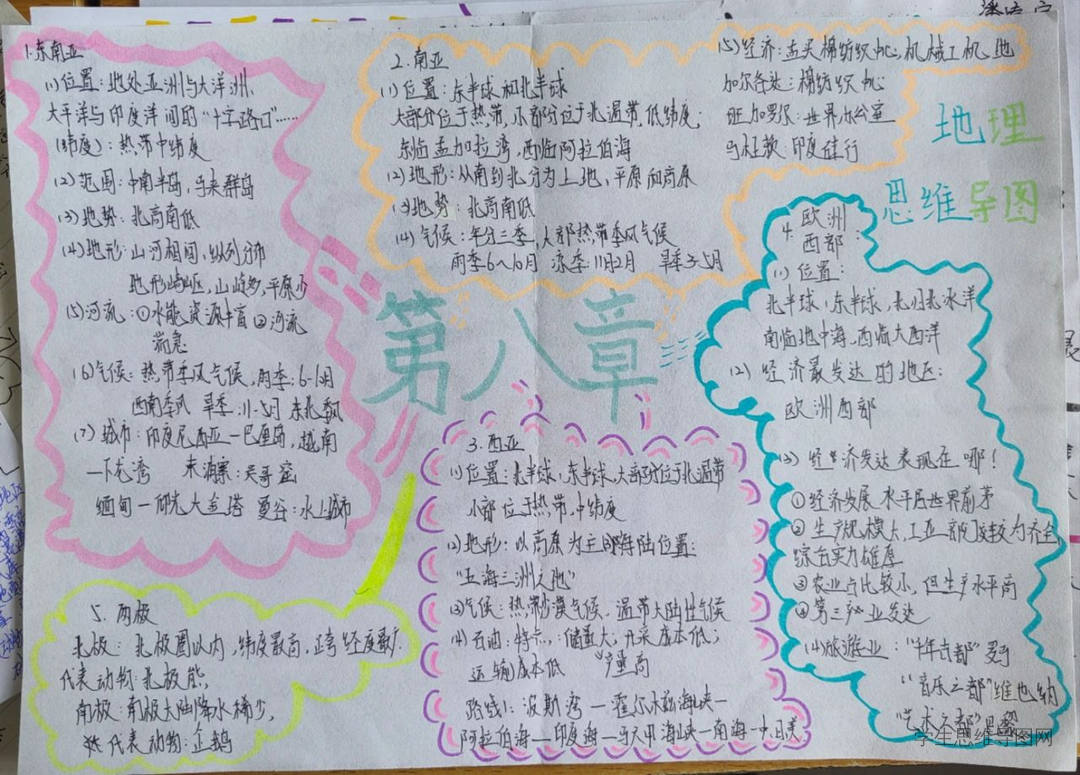 地理
思维导图
第八章
1.东南亚
(1)位置:地处亚洲与大洋洲、
太平洋与印度洋间的"十字路口"……
(纬度):热带中纬度
(2)范围:中南半岛,马来群岛
(3)地势:北高南低
(4)地形:山河相间,纵列分布
地形崎岖,山岭多,平原少
(5)河流:①水能资源丰富②河流
湍急
(6)气候:热带季风气候,雨季:6-10月
西南季风 旱季:11-5月 东北季风
(7)城市:印度尼西亚—巴厘岛,越南
—下龙湾 柬埔寨:吴哥窟
缅甸—仰光大金塔 曼谷:水上城市
2.南亚
(1)位置:东半球和北半球
大部分位于热带,小部分位于北温带,低纬度
东临孟加拉湾,西临阿拉伯海
(2)地形:从南到北分为山地,平原和高原
(3)地势:北高南低
(4)气候:年分三季,大部热带季风气候
雨季:6~10月 凉季:11月2月 旱季3~5月
(5)经济:孟买棉纺织 机械工
加尔各达:棉纺织
班加罗尔:世界办公室
马杜赖:印度
3.西亚
(1)位置:北半球、东半球,大部分位于北温带
小部位于热带,中纬度
(2)地形:以高原为主 海陆位置:
"五海三洲之地"
(3)气候:热带沙漠气候、温带大陆性气候
(4)石油:特点:储量大;开采成本低;
运输成本低 产量高
路线1:波斯湾—霍尔木兹海峡—
阿拉伯海—印度海—马六甲海峡—南海—中、日、美
4.欧洲
西部:
(1)位置:
北半球,东半球,北归北冰洋
南临地中海,西临大西洋
(2)经济最发达的地区:
欧洲西部
(3)经济发达表现在哪!
①经济发展水平居世界前茅
②生产规模大,工业部门较为齐全
综合实力雄厚
③农业占比较小,但生产水平高
④第三产业发达
(4)旅游业:"千年古都"
"音乐之都"维也纳
"艺术之都"巴黎
5.两极
北极:北极圈以内,纬度最高,跨经度最广
代表动物:北极熊,
南极:南极大陆降水稀少,
代表动物:企鹅
学生思维导图网